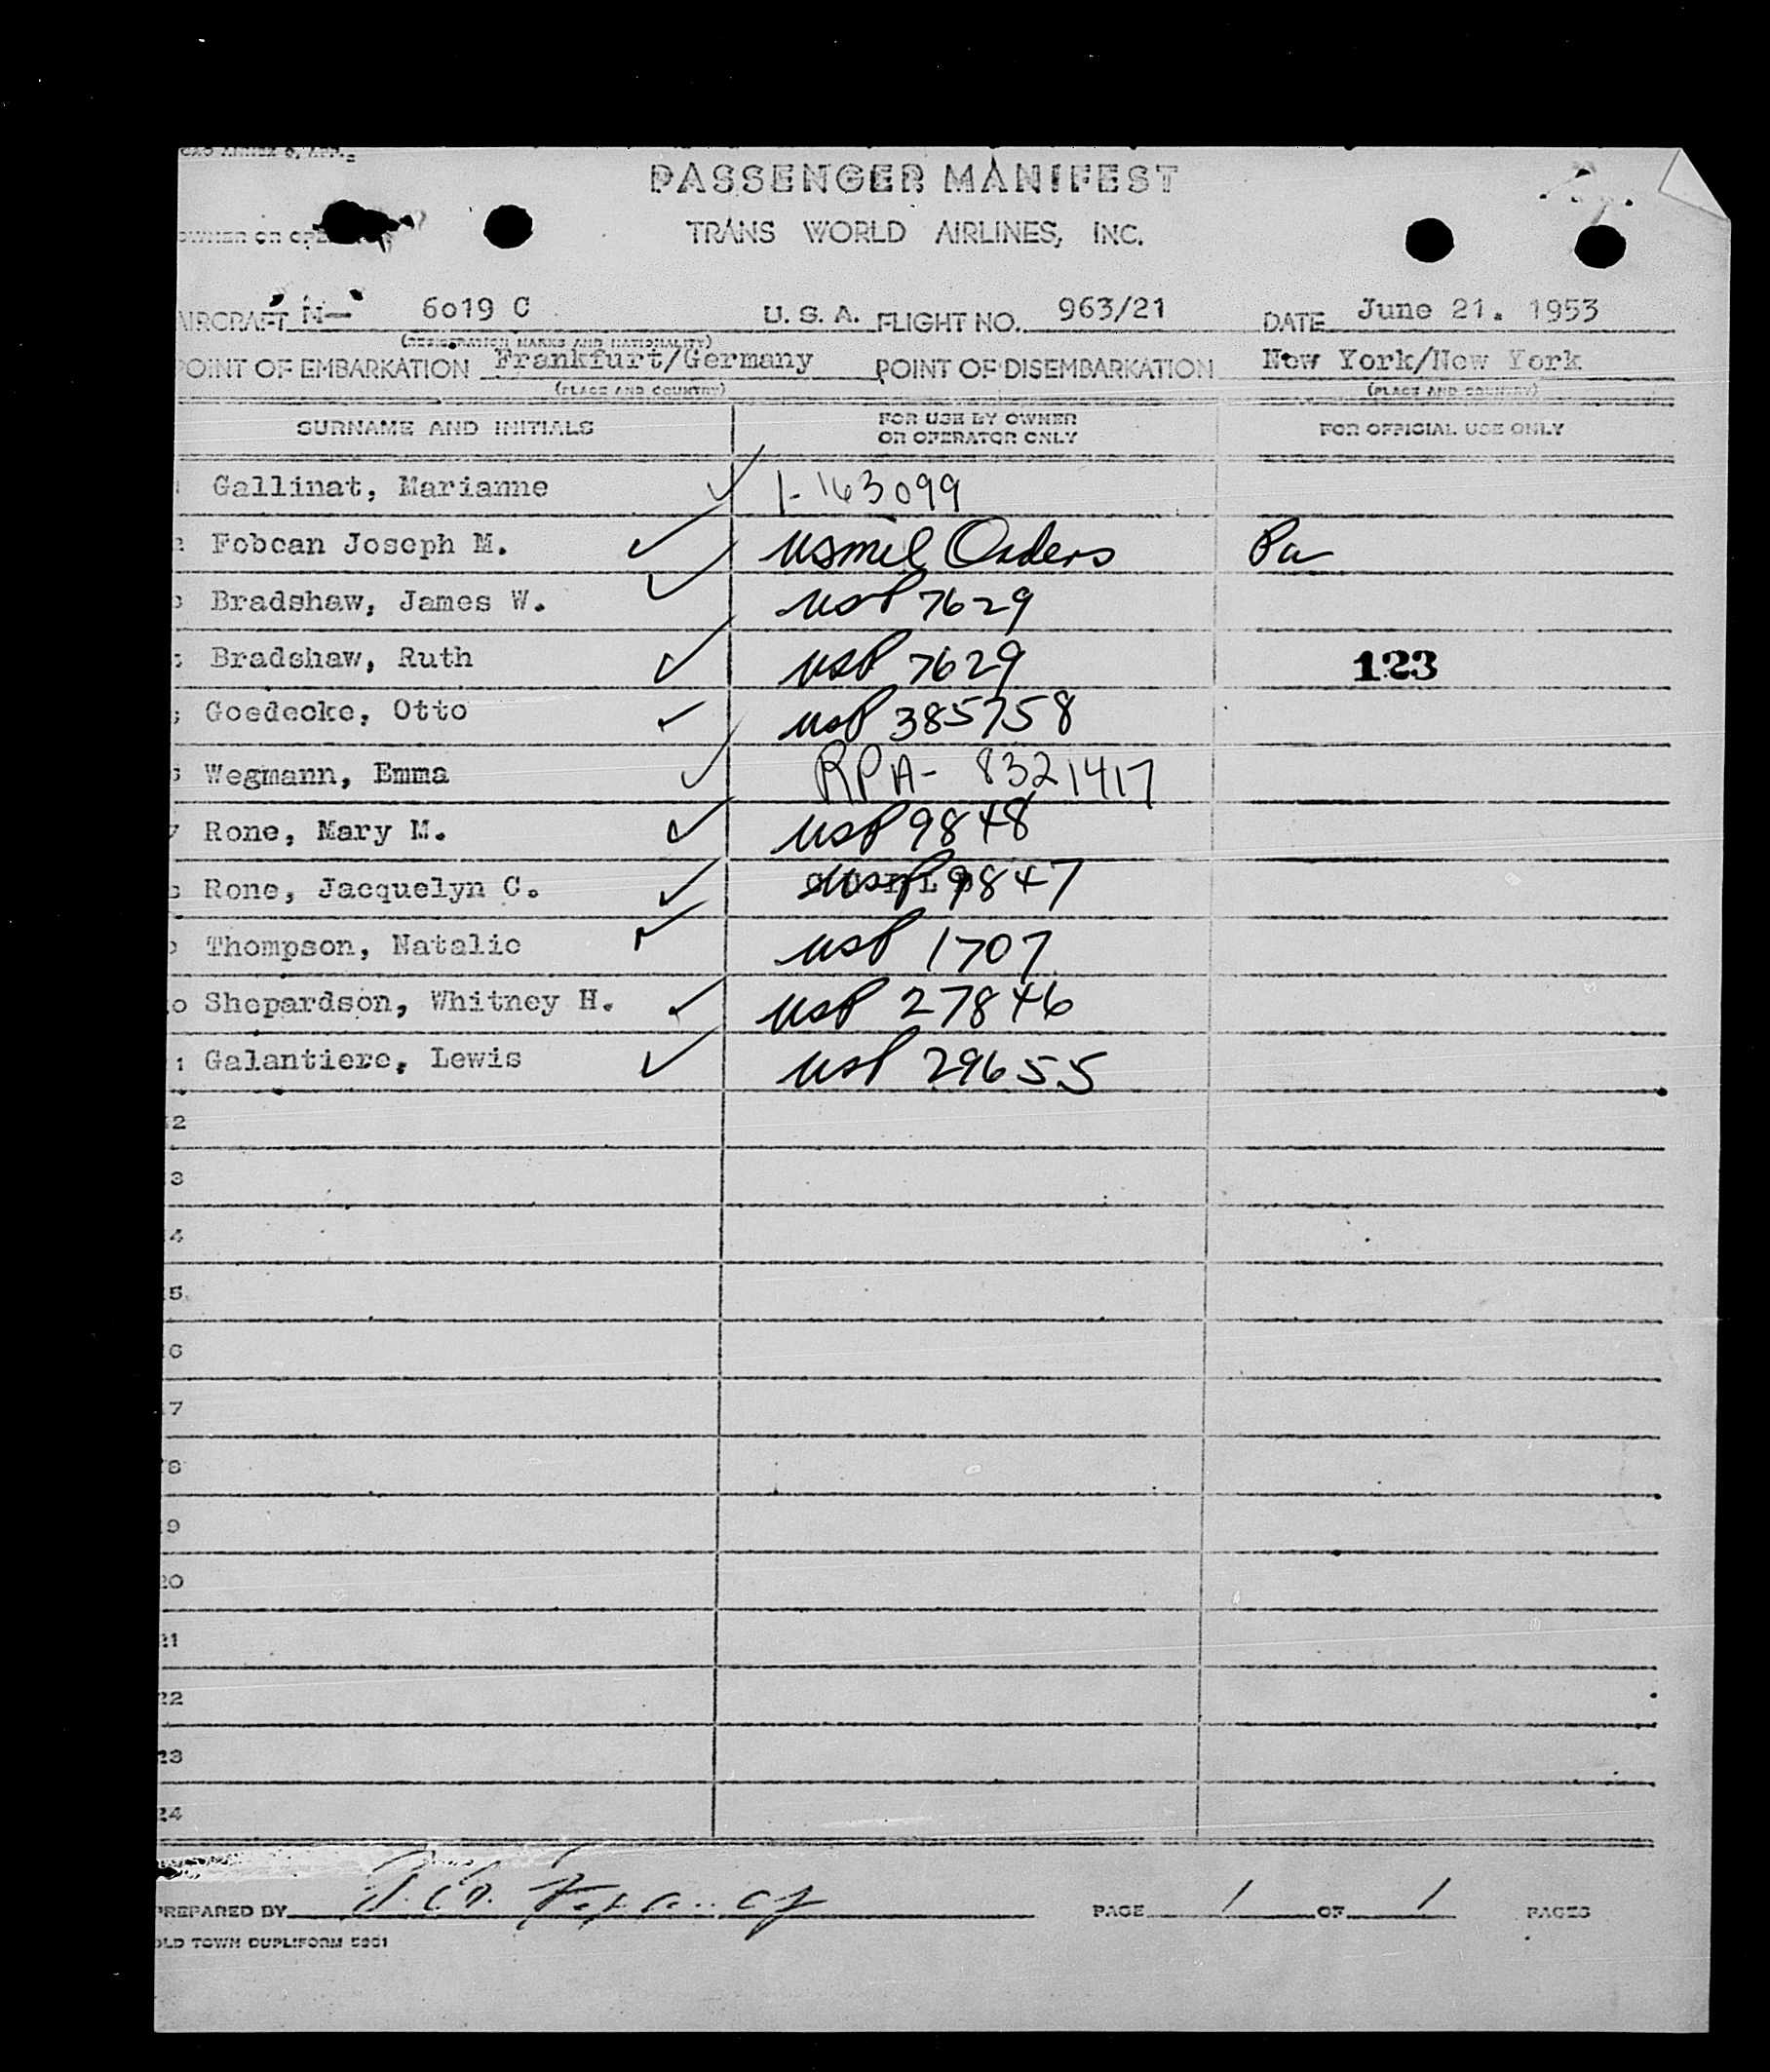 PASSENGER MANIFEST
TRANS WORLD AIRLINES, INC.
OWNER OR
AIRCRAFT N— 6o19 C U. S. A. FLIGHT NO. 963/21 DATE June 21. 1953
(REGISTRATION MARKS AND NATIONALITY)
POINT OF EMBARKATION Frankfurt/Germany POINT OF DISEMBARKATION New York/New York
(PLACE AND COUNTRY) (PLACE AND COUNTRY)
SURNAME AND INITIALS FOR USE BY OWNER OR OPERATOR ONLY FOR OFFICIAL USE ONLY
Gallinat, Marianne ✓ 1-163099
Fobean Joseph M. ✓ usmil Orders
Bradshaw, James W. ✓ USP 7629
Bradshaw, Ruth ✓ USP 7629 123
Goedecke, Otto ✓ USP 385758
Wegmann, Emma ✓ RPA- 8321417
7 Rone, Mary M. ✓ USP 9848
Rone, Jacquelyn C. ✓ USP 9847
Thompson, Natalie ✓ USP 1707
10 Shepardson, Whitney H. ✓ USP 27846
11 Galantiere, Lewis ✓ USP 29655
12
13
14
15
16
17
18
19
20
21
22
23
24
PREPARED BY PAGE 1 OF 1 PAGES
OLD TOWN DUPLIFORM 5901